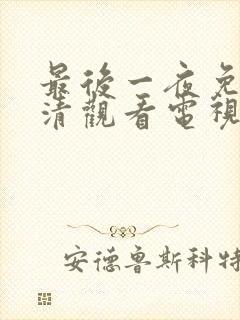 最後一夜免
清觀看電視
安德魯斯科特